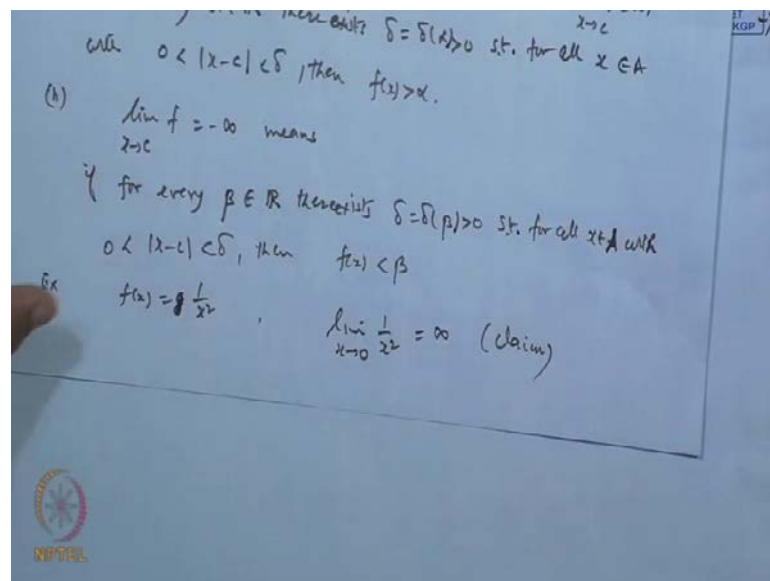 α ∈ IR there exists δ = δ(α) > 0 s.t. for all x ∈ A
x→c
with 0 < |x-c| < δ, then f(x) > α.
(h) lim f = -∞ means
x→c
if for every β ∈ IR there exists δ = δ(β) > 0 s.t. for all x ∈ A with
0 < |x-c| < δ, then f(x) < β
Ex f(x) = 1/x², lim x→0 1/x² = ∞ (claim)
KGP
NPTEL